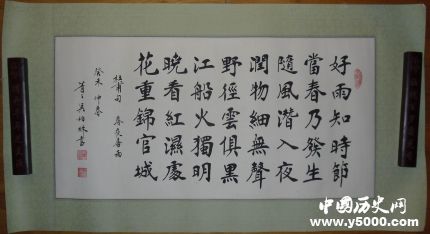 好雨知時節
當春乃發生
隨風潛入夜
潤物細無聲
野徑雲俱黑
江船火獨明
晚看紅濕處
花重錦官城
杜甫句 春夜喜雨
癸未
中國历史网
www.y5000.com